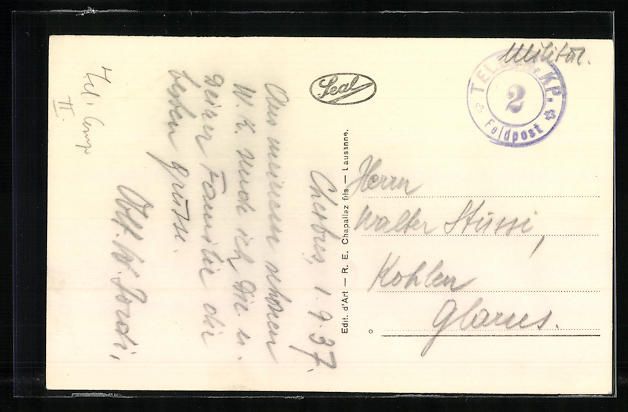 Militär.
TEL. KP.
2
Feldpost
Seal
Edit. d'Art — R. E. Chapallaz fils. — Lausanne.
Herrn
Walter Stüssi,
Kohlen
Glarus.
Chexbres, 1.9.37.
Aus meinem schönen
W.K. sende ich Dir u.
deiner Familie die
besten Grüsse.
Tel. Comp.
II.